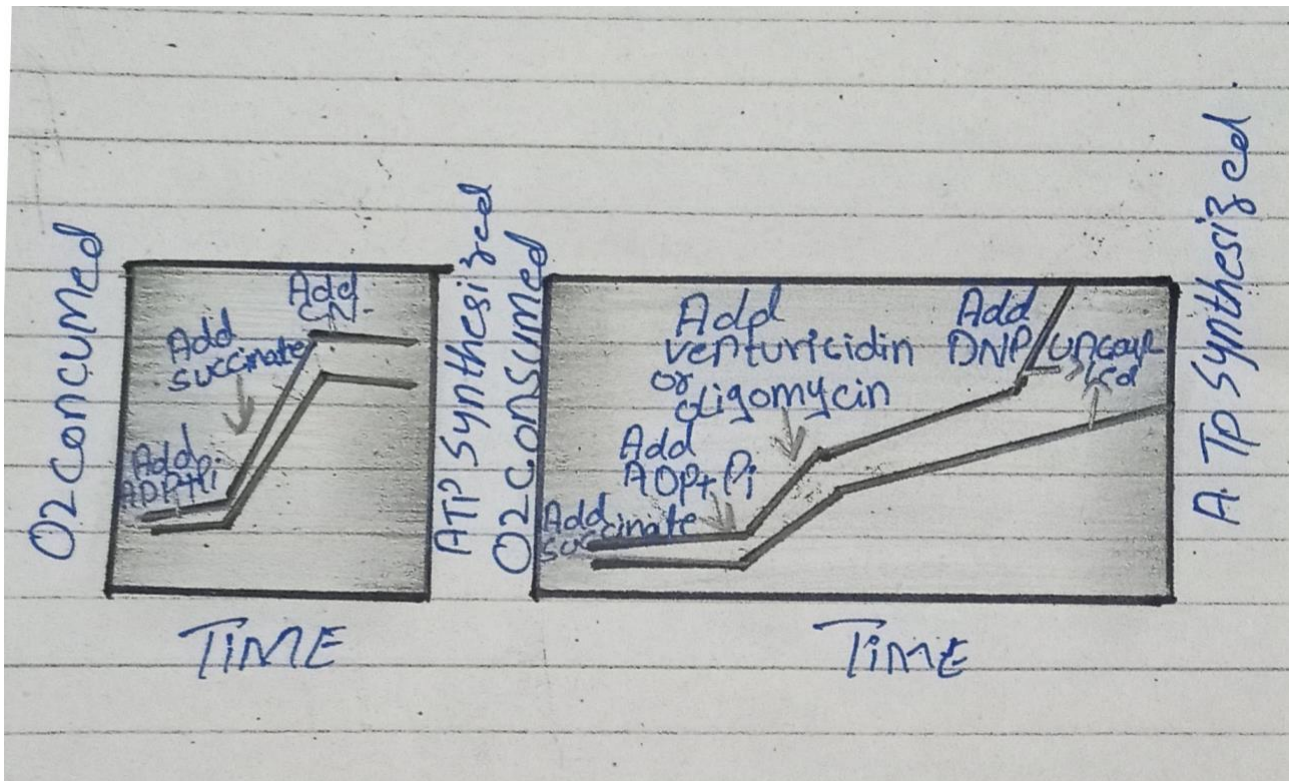 O2 Concumed
Add
ADP+Pi
Add
succinate
Add
CN-
ATP Synthesized
TIME
O2 Consumed
Add
succinate
Add
ADP+ Pi
Add
venturicidin
or
oligomycin
Add
DNP
uncoup
led
A. TP Synthesized
TIME